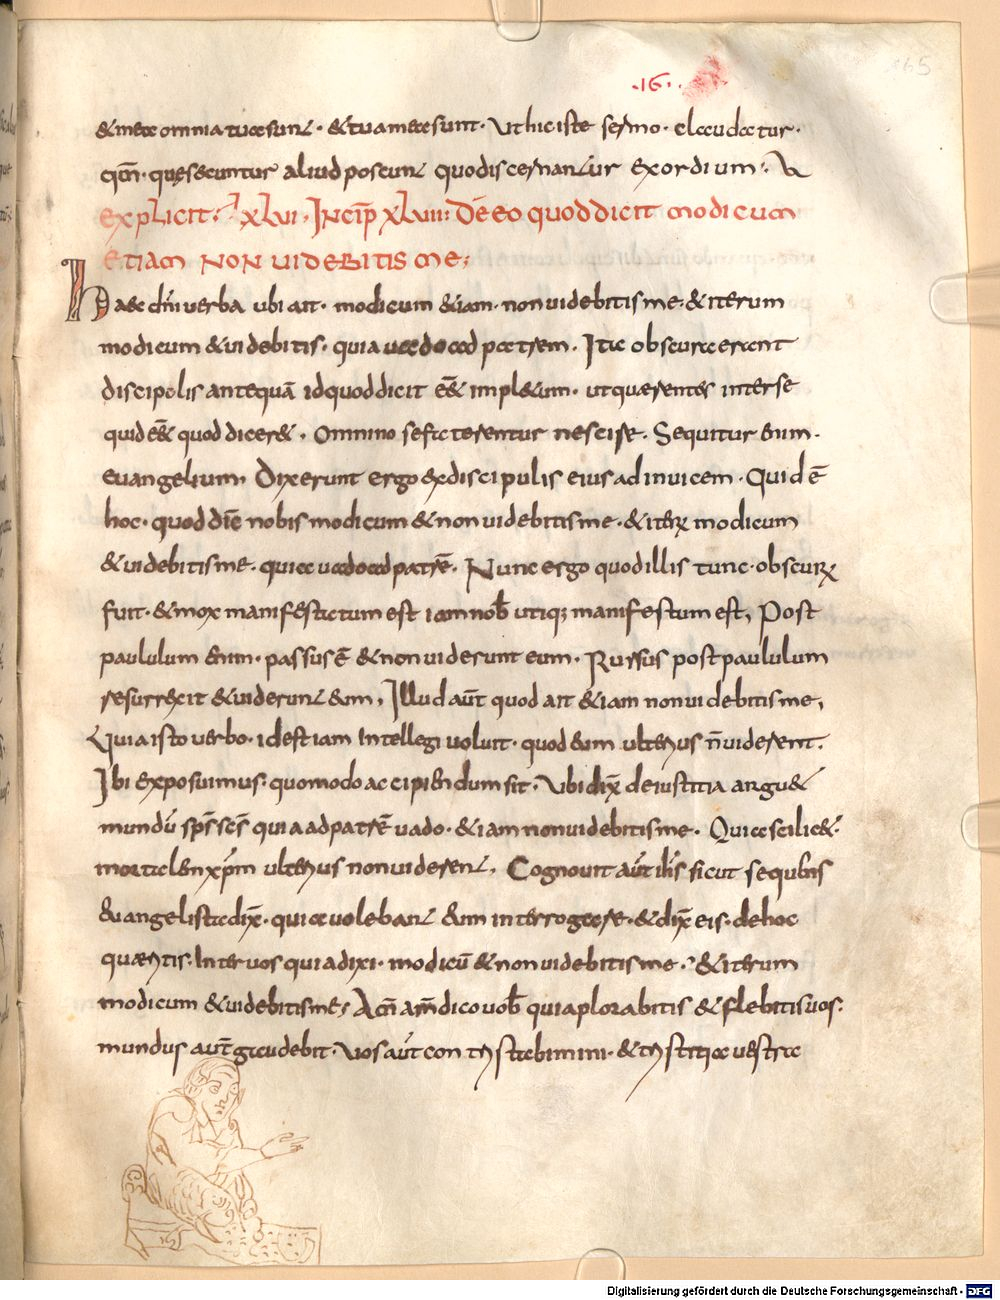 .16.
165
& mea omnia tua sunt · & tua mea sunt · Ut hic iste sermo · claudatur ·
qm̄ · quę secuntur aliud poscunt quo discernantur exordium :
Explicit · XLVI · Incip̄ XLVII : De eo quod dicit modicum
etiam non videbitis me ;
Haec dn̄i verba ubi ait · modicum & iam · non videbitis me · & iterum
modicum & videbitis · quia vado ad patrem · Ita obscura erant
discipolis antequā id quod dicit eē& impl&um · ut quaerentes inter se
quid eē& quod dicer& · Omnino se faterentur nescire · Sequitur enim ·
evangelium Dixerunt ergo ex discipulis eius ad invicem · Quid ē
hoc · quod dic̄ nobis modicum & non videbitis me · & iteꝝ modicum
& videbitis me · quia vado ad patrē · Nunc ergo quod illis tunc · obscuꝝ
fuit · & mox manifestatum est iam nob̄ utiq; manifestum est, Post
paululum enim · passus ē & non viderunt eum · Rursus post paululum
resurrexit & viderunt eum, Illud aūt quod ait & iam non videbitis me,
Quia isto verbo · id est iam intellegi voluit · quod eum ulterius n̄ viderent ·
Ibi exposuimus · quomodo accipiendum sit · Ubi dix̄ de iustitia argu&
mundū sp̄s sc̄s quia ad patrē vado · & iam non videbitis me · Quia scilic& ·
mortalem xp̄m ulterius non viderent · Cognovit aūt ih̄s sicut sequens
evangelista dix̄ · quia volebant eum interrogare · & dix̄ eis · de hoc
quaeritis · Inter vos quia dixi · modicū & non videbitis me · & iterum
modicum & videbitis me, Am̄ am̄ dico vob̄ quia plorabitis & flebitis vos ·
mundus aūt gaudebit · vos aūt contristabimini · & tristitia vestra
Digitalisierung gefördert durch die Deutsche Forschungsgemeinschaft - DFG